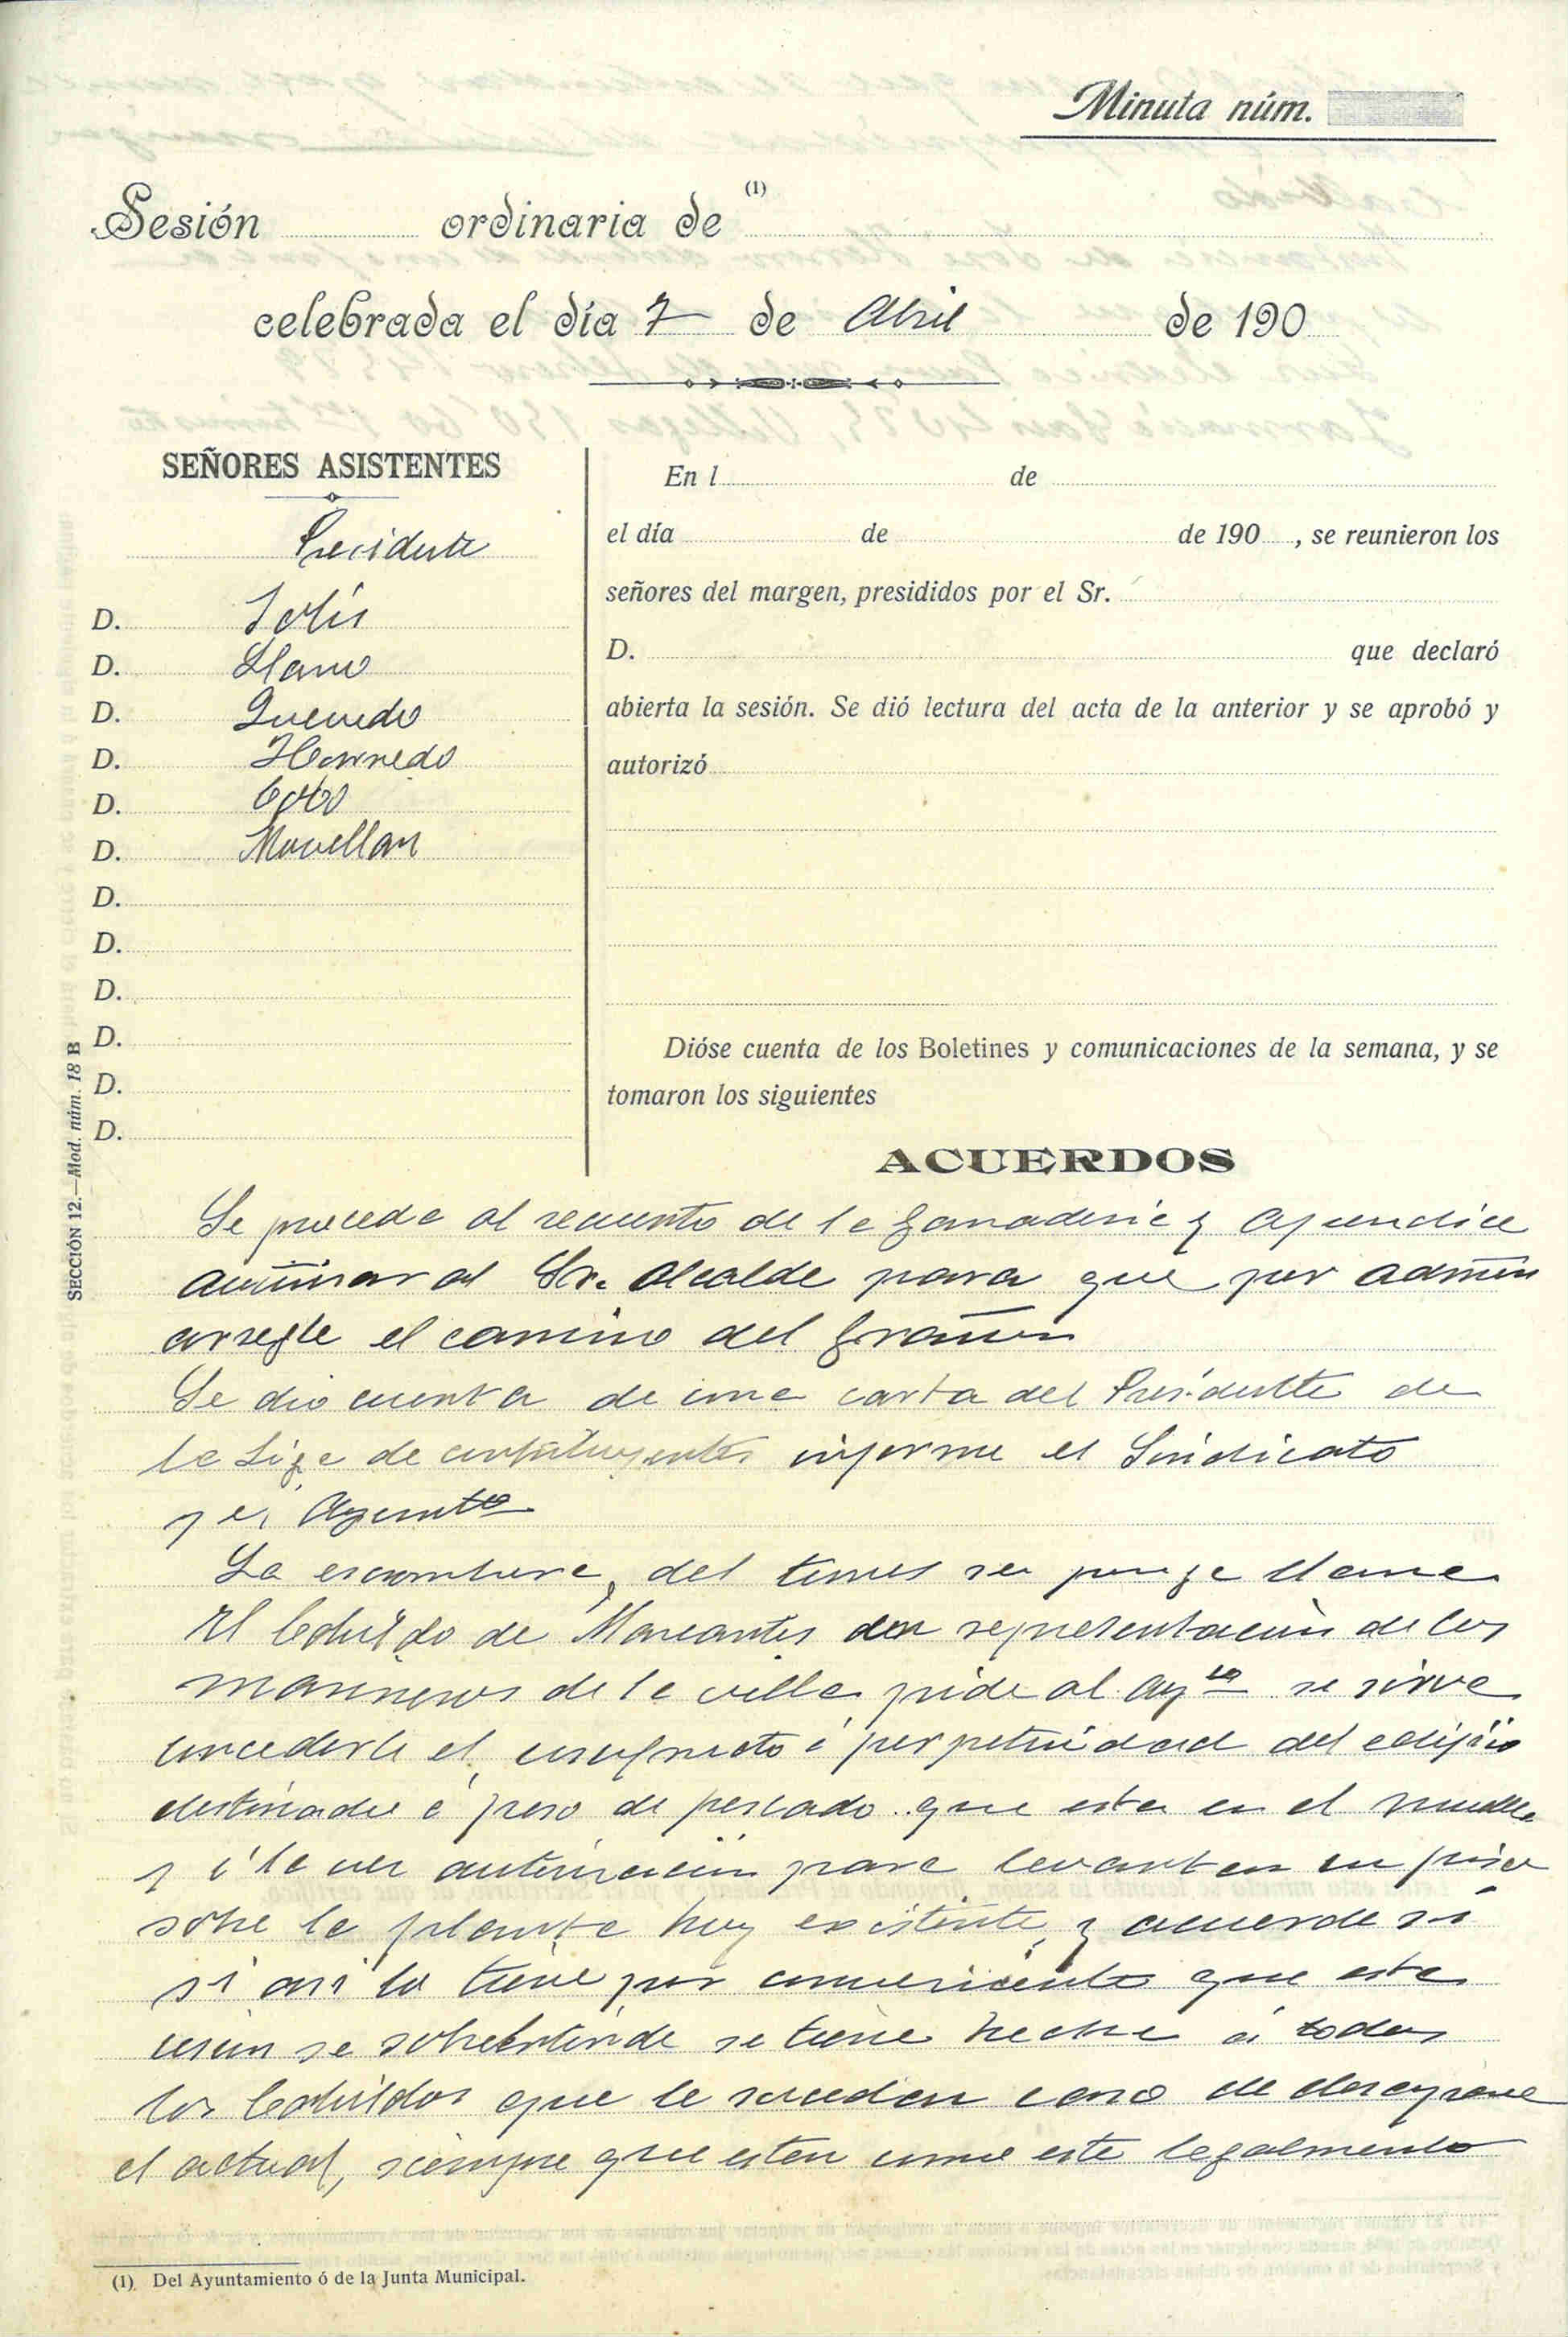 Minuta núm.
Sesión ordinaria de (1)
celebrada el día 7 de Abril de 190
SEÑORES ASISTENTES
Presidente
D. Solís
D. Llano
D. Quevedo
D. Herrredo
D. Cobo
D. Movellan
D.
D.
D.
D.
D.
D.
En l de
el día de de 190 , se reunieron los
señores del margen, presididos por el Sr.
D. que declaró
abierta la sesión. Se dió lectura del acta de la anterior y se aprobó y
autorizó
Dióse cuenta de los Boletines y comunicaciones de la semana, y se
tomaron los siguientes
ACUERDOS
Se proceda al recuento de la ganaderia y apendice
al Sr. Alcalde para que por admon
arregle el camino del
Se dio cuenta de una carta del Presidente de
la Liga de contribuyentes informe el Sindicato
y el Ayunto
La escombrera, del se ponga
El Cabildo de Mareantes en representación de los
marineros de la villa pide al Ayto se sirva
concederle el usufructo á perpetuidad del edificio
destinado á peso de pescado que esta en el muelle
y á la vez autorización para levantar un piso
sobre la planta hoy existente, y acuerde
si asi lo tiene por conveniente que esta
cesión se sobrentiende se tiene hecha á todos
los Cabildos que le sucedan caso de
el actual, siempre que esten como este legalmente
(1) Del Ayuntamiento ó de la Junta Municipal.
SECCIÓN 12.—Mod. núm. 18 B